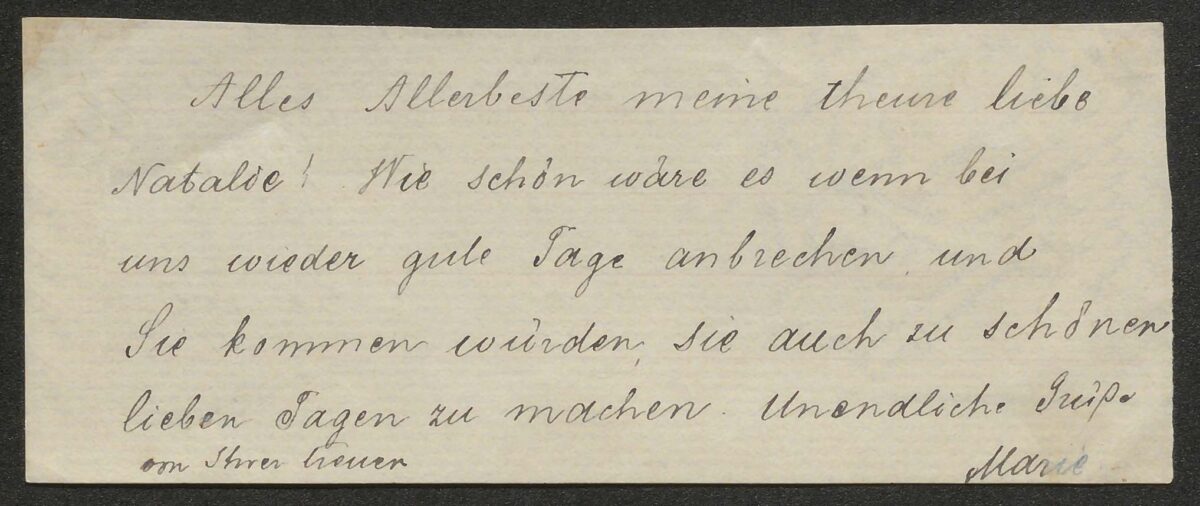 Alles Allerbeste meine theure liebe
Natalie! Wie schön wäre es wenn bei
uns wieder gute Tage anbrechen und
Sie kommen würden, sie auch zu schönen
lieben Tagen zu machen. Unendliche Grüße
von Ihrer treuen
Marie